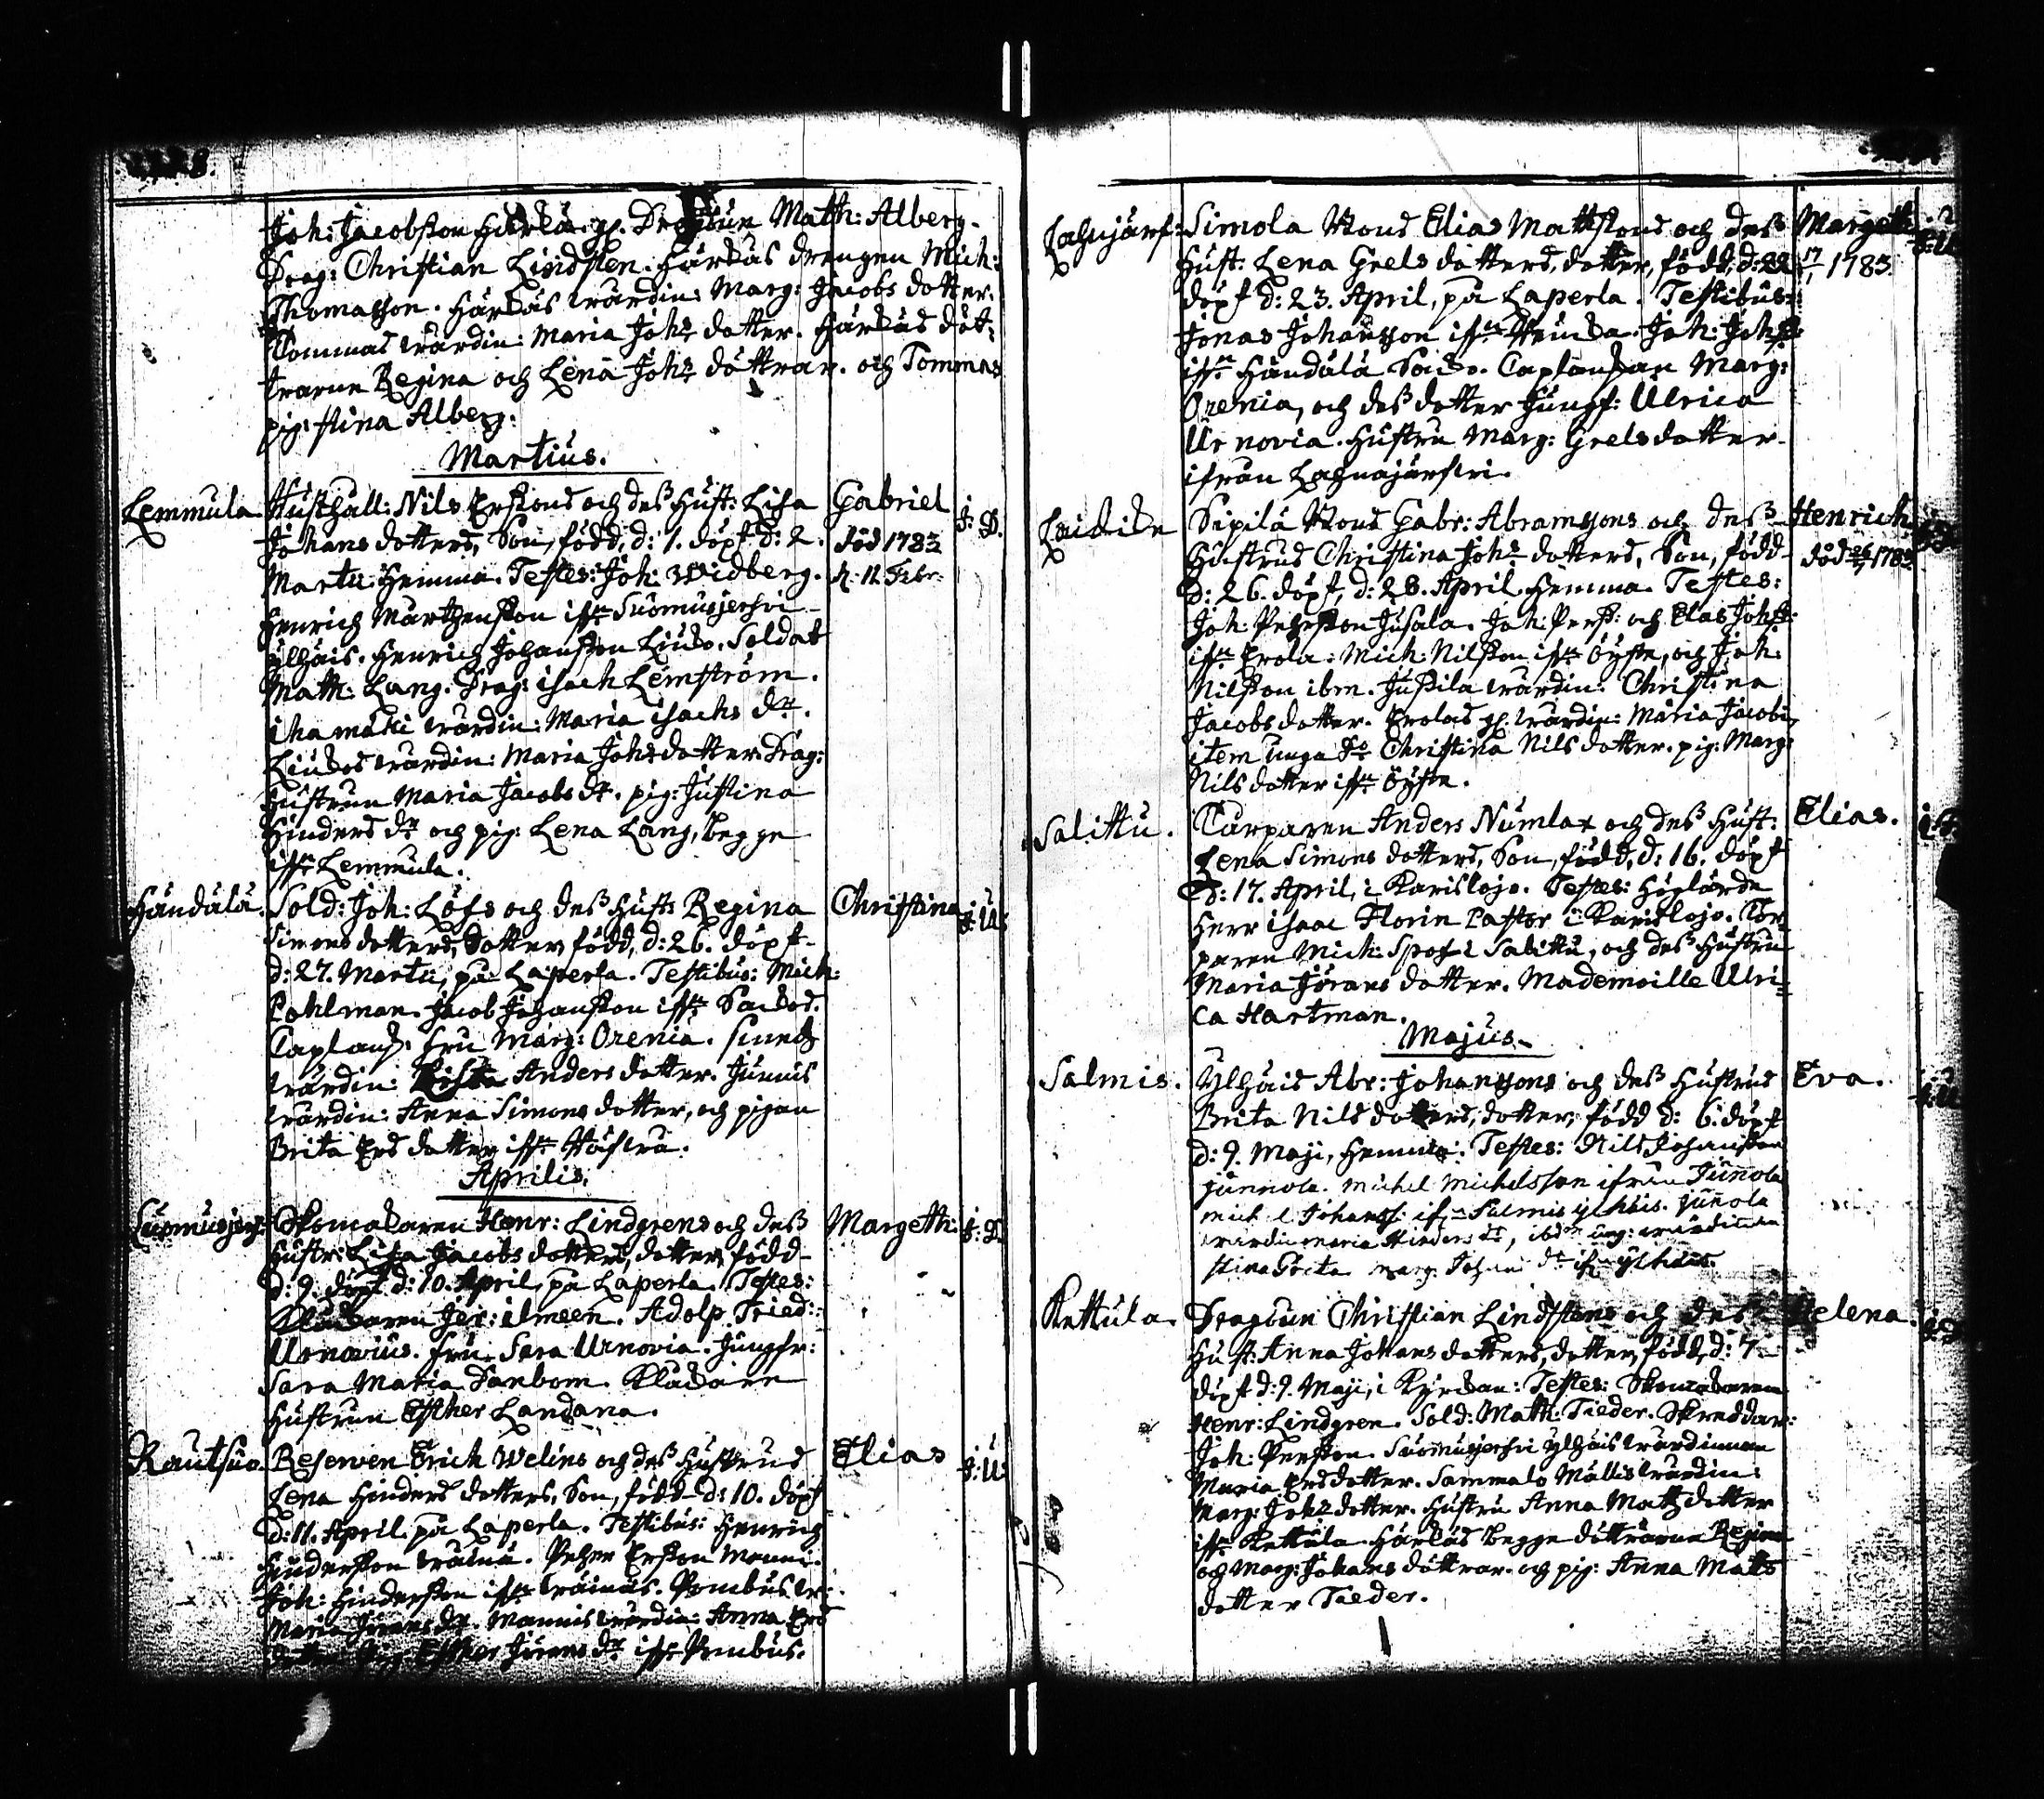 Joh: Jacobsson Härkä. gl. Dragun Math: Alberg.
Drag: Christian Lindsten. Härkäs drengen Mich:
Thomasson. Härkäs wärdin: Marg: Jacobs dotter.
Tommas wärdin: Maria Johs dotter. Härkäs döt-
trarne Regina och Lena Johs döttrar. och Tommas
pig: Stina Alberg:
Martius.
Lemmula Husthåll: Nils Erssons och dess Hust: Lisa Gabriel
Johans dotters, Son, född, d: 1. döpt d: 2. död 1783
Martii Hemma. Testes: Joh: Widberg. d. 11 Febr:
Henrich Mårtensson ifrn Suomusjerfvi
Ylhäis. Henrich Johansson Liuko. Soldat
Math: Lång. Drag: isach Lemström.
ihamäki wärdin: Maria isachs dr.
Liukos wärdin: Maria Johs dotter. Drag:
Hustrun Maria Jacobs dr. pig: Justina
Hinders dr och pig: Lena Lång, begge
ifrn Lemmula.
Händälä. Sold: Joh: Löfs och dess Hust: Regina Christina J: U:
Simons dotters, dotter, född, d: 26. döpt
d: 27. Martii, på Laperla. Testibus: Mich:
Pohlman. Jacob Johansson ifrn
Caplansf. fru Marg: Orenia.
wärdin: Anders dotter. Junnis
wärdin: Anna Simons dotter, och pigan
Brita Ers dotter ifrn
Aprilis.
Suomusjerf: Skomakaren Henr: Lindgrens och dess Margeth: J: S.
Hustr: Lisa Jacobs dotters, dotter, född
d: 9. döpt d: 10. April, på Laperla. Testes:
Klåckaren Jer: ilmeen. Adolp. Fried:
Urnovius. fru Sara Urnovia. Jungfr:
Sara Maria Danbom. Klåckare
Hustrun Esther Landana.
Rautsuo. Reserven Erich Welins och dess Hustrus Elias J: U:
Lena Hinders dotters, Son, född d: 10. döpt
d: 11. April. på Laperla. Testibus: Henrich
Hindersson Petter Ersson Manni.
Joh: Hindersson ifrn Pombus
Maria Jörans dr. Mannis wärdin: Anna Ers
dotter Pig: Esther Jörans dr ifrn Pombus.
Lahnjärf: Simola Bons Elias Mattssons och dess Margeth
Hust: Lena Grels dotters, dotter, född, d: 22 1783
döpt d: 23. April, på Laperla. Testibus:
Jonas Johansson ifrn Joh: Johss
ifrn Händälä Caplanskan Marg:
Orenia, och dess dotter Jungf: Ulrica
Urnovia. Hustru Marg: Grels dotter
ifrån Lahnajärfvi.
Laidike Sipilä Bons Gabr: Abramssons och dess Henrich
Hustrus Christina Johs dotters, Son, född död 1783
d: 26. döpt, d: 28. April Hemma. Testes:
Joh: Pehrsson Jusala. Joh: Perss: och Elias Johss:
ifrn Erola. Mich: Nilsson ifrn Öyste, och Joh:
Nilsson ibm. Jussila wärdin: Christina
Jacobs dotter. Erolas gl. wärdin: Maria Jacobs
item unga do Christina Nils dotter. pig: Marg:
Nils dotter ifrn Öyste.
Salittu. Torparen Anders Numlax och dess Hust: Elias.
Lena Simons dotters, Son, född, d: 16. döpt
d: 17. April, i Karislojo. Testes: Höglärde
Herr isaac Florin Pastor i Karislojo. Tor-
paren Mich: Spof i Salittu, och dess Hustru
Maria Jörans dotter. Mademoille Ulri-
ca Hartman.
Majus.
Salmis. Ylhäis Abr: Johanssons och dess Hustrus Eva.
Brita Nils dotters, dotter, född d: 6. döpt
d: 9. Maji, Hemma: Testes: Nils Johansson
Junnola. Michel Michelsson ifrån Junnola
Johanss: ifrn Salmis ylhäis. Junola
wärdin maria Hinders dr, ibdm ung: wärdinnan
Stina Marg. Johan dr ifrn ylhäis.
Kettula. Dragun Christian Lindstens och dess Helena.
Hust: Anna Johans dotters, dotter, född, d: 7
döpt d: 9. Maji, i Kyrkan: Testes: Skomakaren
Henr: Lindgren. Sold: Math: Tieder. Skreddar:
Joh: Persson. Suomusjerfvi Ylhäis wärdinnan
Maria Ers dotter. Sammalo Mattis wärdin:
Marg: Johs dotter. Hustru Anna Matts dotter
ifrn Kettula. Härkäs begge döttrarne Regina
och Marg: Johans döttrar. och pig: Anna Matts
dotter Tieder.